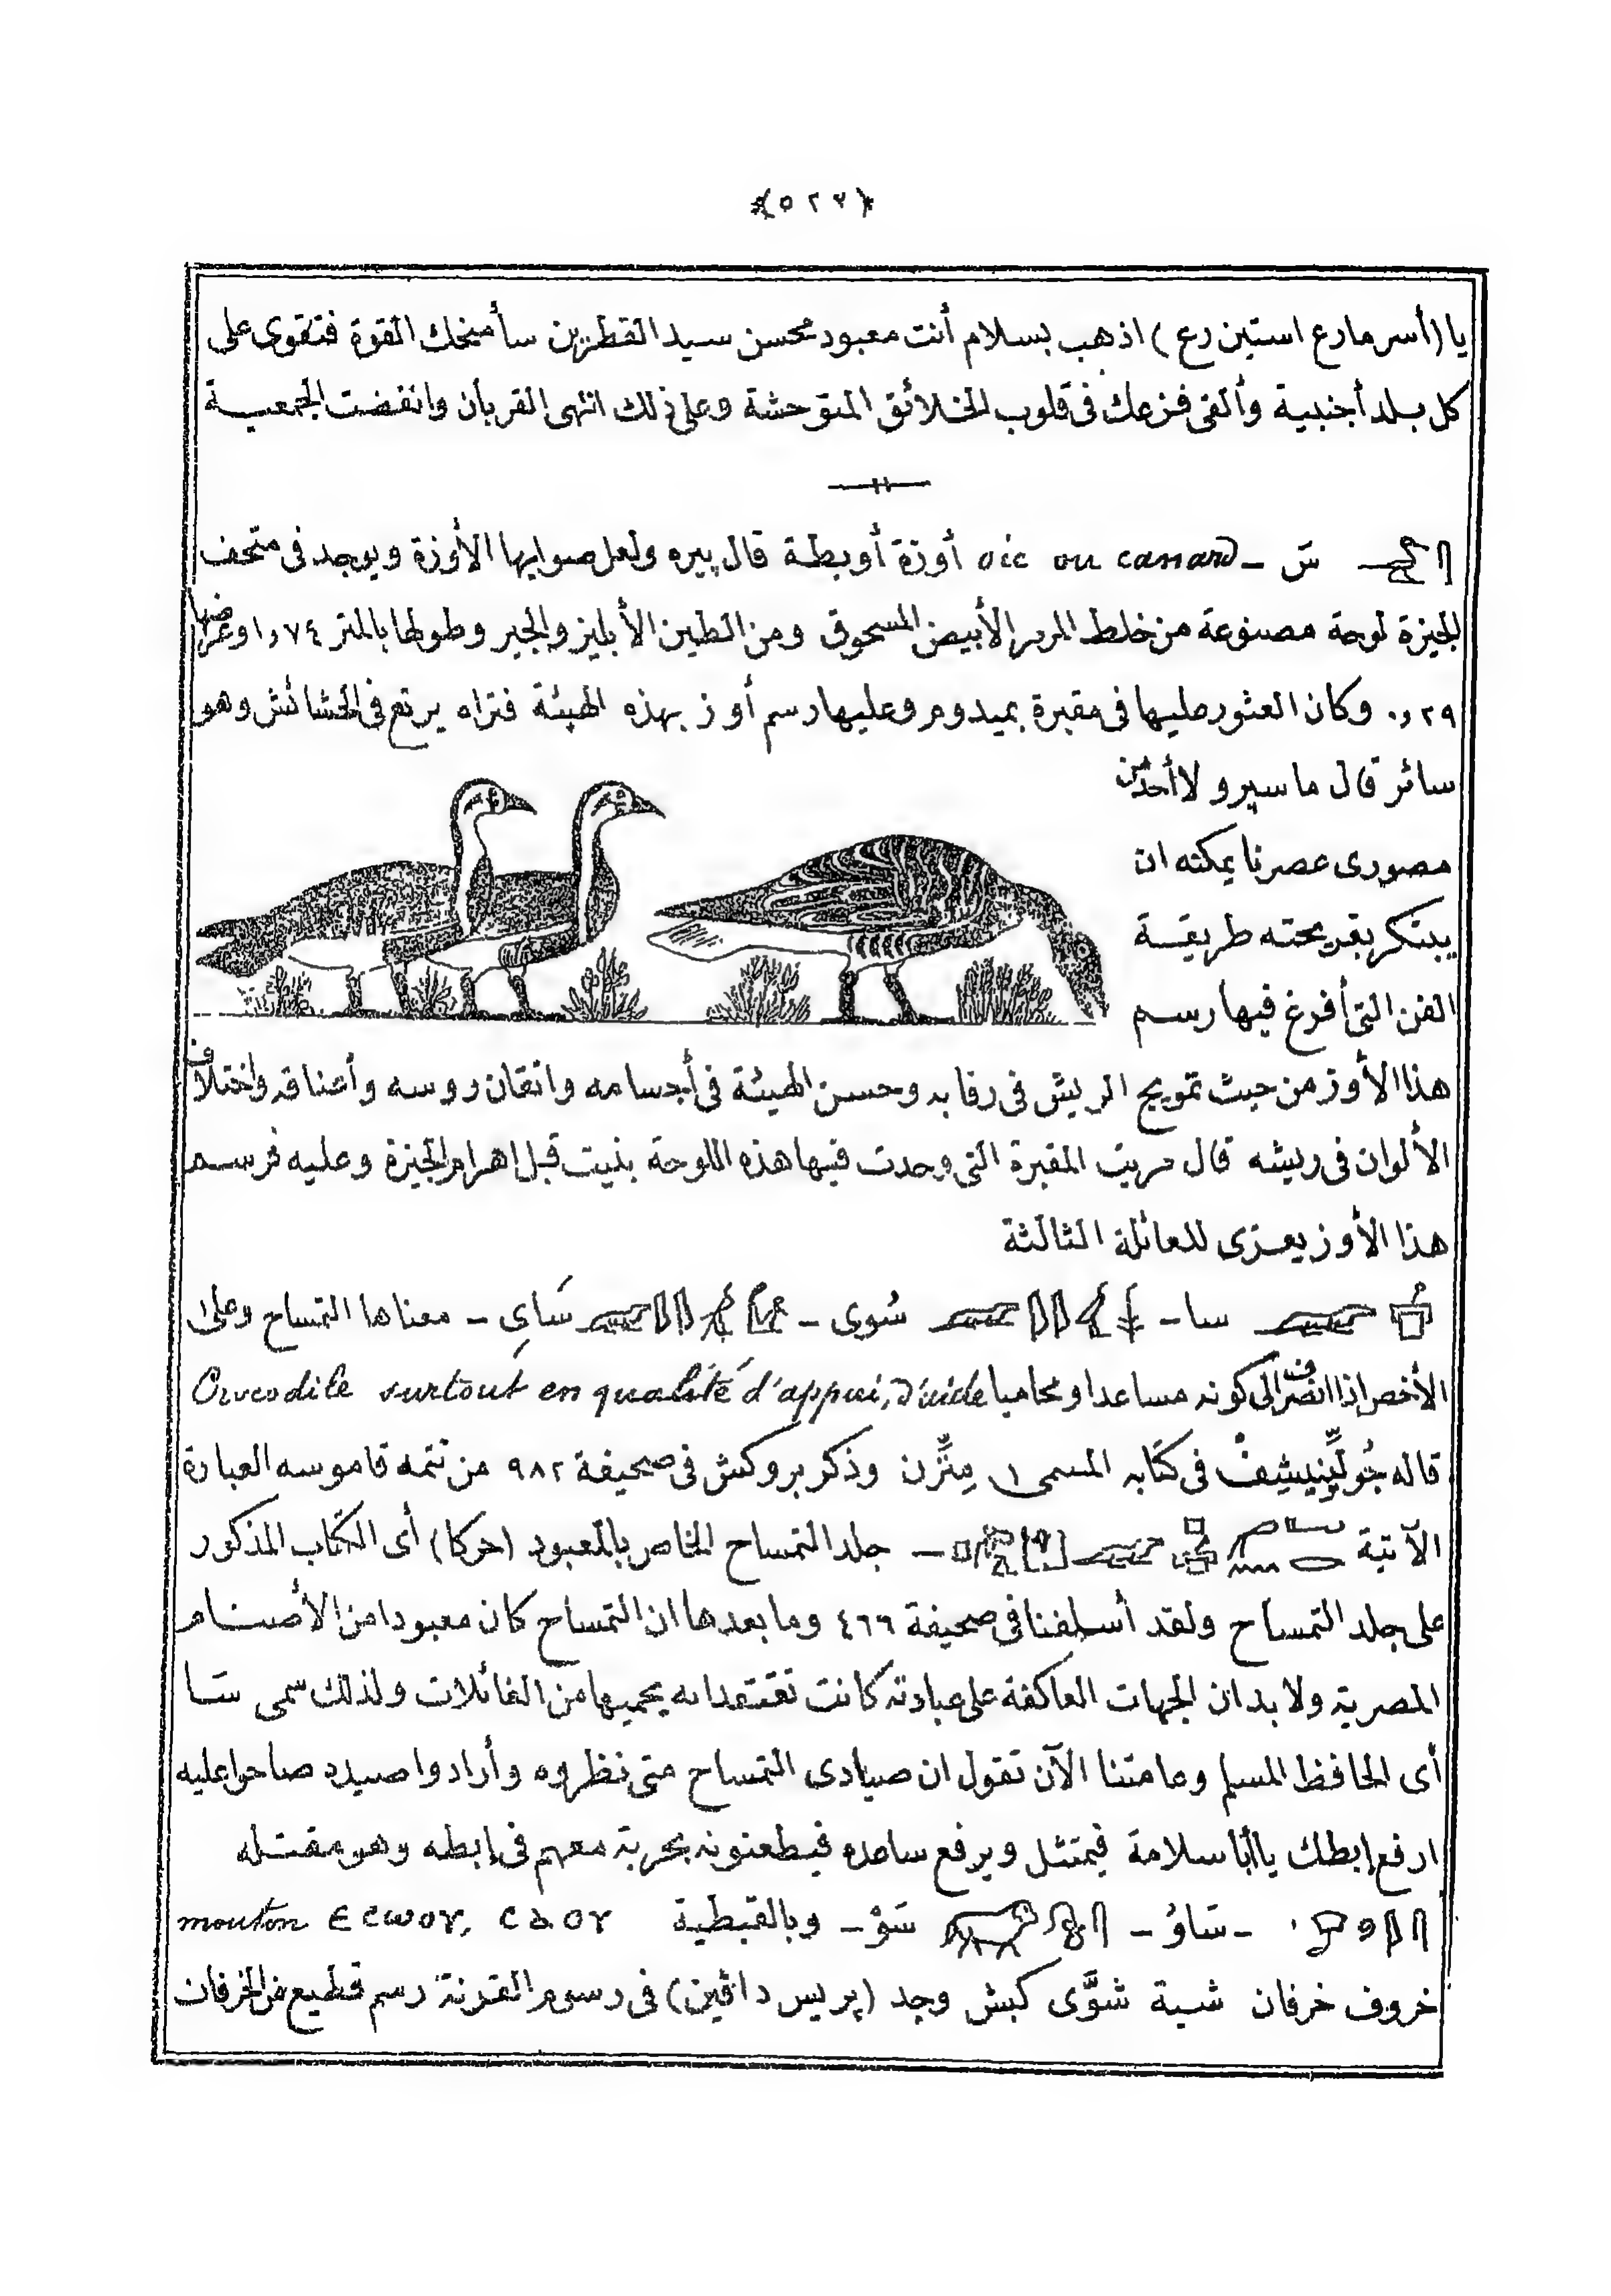 ﴿٥٢٧﴾
يا (أسرمارع استين رع) اذهب بسلام أنت معبود محسن سيد القطرين سأمنحك القوة فتقوى على
كل بلد أجنبية وألقى فزعك فى قلوب الخلائق المتوحشة وعلى ذلك انتهى القربان وانفضت الجمعية
سَ - oie ou canard أوزة أو بطة قال پيره ولعل صوابها الأوزة ويوجد فى متحف
الجيزة لوحة مصنوعة من خلط المرمر الأبيض المسحوق ومن الطين الأبليز والجير وطولها بالمتر ١٫٧٤ وعرضها
٠٫٢٩ وكان العثور عليها فى مقبرة بميدوم وعليها رسم أوز بهذه الهيئة فتراه يرتع فى الحشائش وهو
سائر قال ماسپرو لا أحد من
مصورى عصرنا يمكنه ان
يبتكر بقريحته طريقة
الفن التى أفرغ فيها رسم
هذا الأوز من حيث تمويج الريش فى رقابه وحسن الهيئة فى أجسامه واتقان روسه وأعناقه واختلاف
الألوان فى ريشه قال مريت المقبرة التى وجدت فيها هذه اللوحة بنيت قبل اهرام الجيزة وعليه فرسم
هذا الأوز يعزى للعائلة الثالثة
سا - سُوى - سَاىِ - معناها التمساح وعلى
الأخص اذا انصرف الى كونه مساعدا ومحاميا Crocodile surtout en qualité d'appui, d'aide
قاله جُولِّينِيشِفْ فى كتابه المسمى مِتِّرْن وذكر بروكش فى صحيفة ٩٨٢ من تتمة قاموسه العبارة
الآتية - جلد التمساح الخاص بالمعبود (حركا) أى الكتاب المذكور
على جلد التمساح ولقد أسلفنا فى صحيفة ٤٦٦ وما بعدها ان التمساح كان معبودا من الأصنام
المصرية ولا بد ان الجهات العاكفة على عبادته كانت تعتقد انه يحميها من الغائلات ولذلك سمى سَا
أى الحافظ المسلم وعامتنا الآن تقول ان صيادى التمساح متى نظروه وأرادوا صيده صاحوا عليه
ارفع إبطك يا أبا سلامة فيمتثل ويرفع ساعده فيطعنونه بحربة معهم فى إبطه وهو مقتله
- سَاوُ - سَوْ - وبالقبطية ⲉⲥⲱⲟⲩ, ⲥⲁⲟⲩ mouton
خروف خرفان شبة شوَّى كبش وجد (پريس داڤين) فى رسوم القرنة رسم قطيع من الخرفان